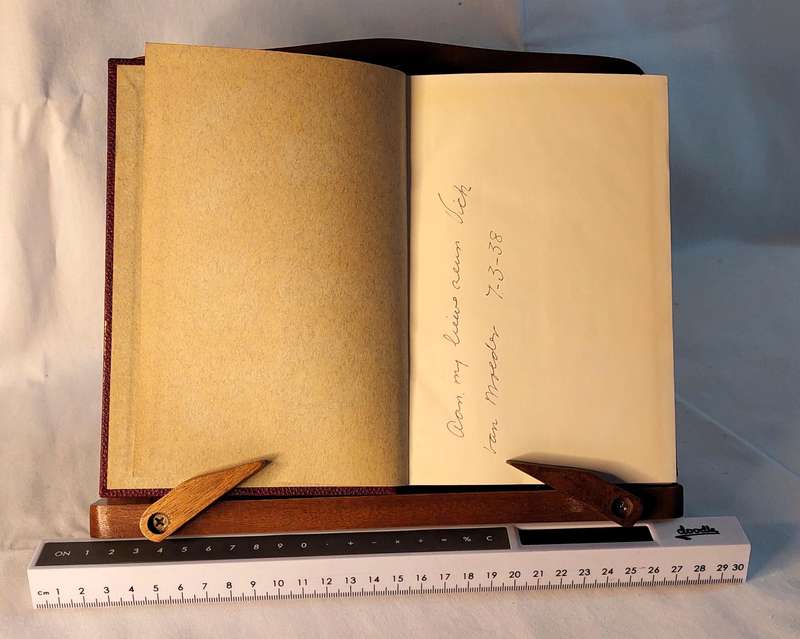 Aan my liewe seun Vick
van Moeder 7-3-38
ON 1 2 3 4 5 6 7 8 9 0 · + − × ÷ = % C
doodle
cm 1 2 3 4 5 6 7 8 9 10 11 12 13 14 15 16 17 18 19 20 21 22 23 24 25 26 27 28 29 30